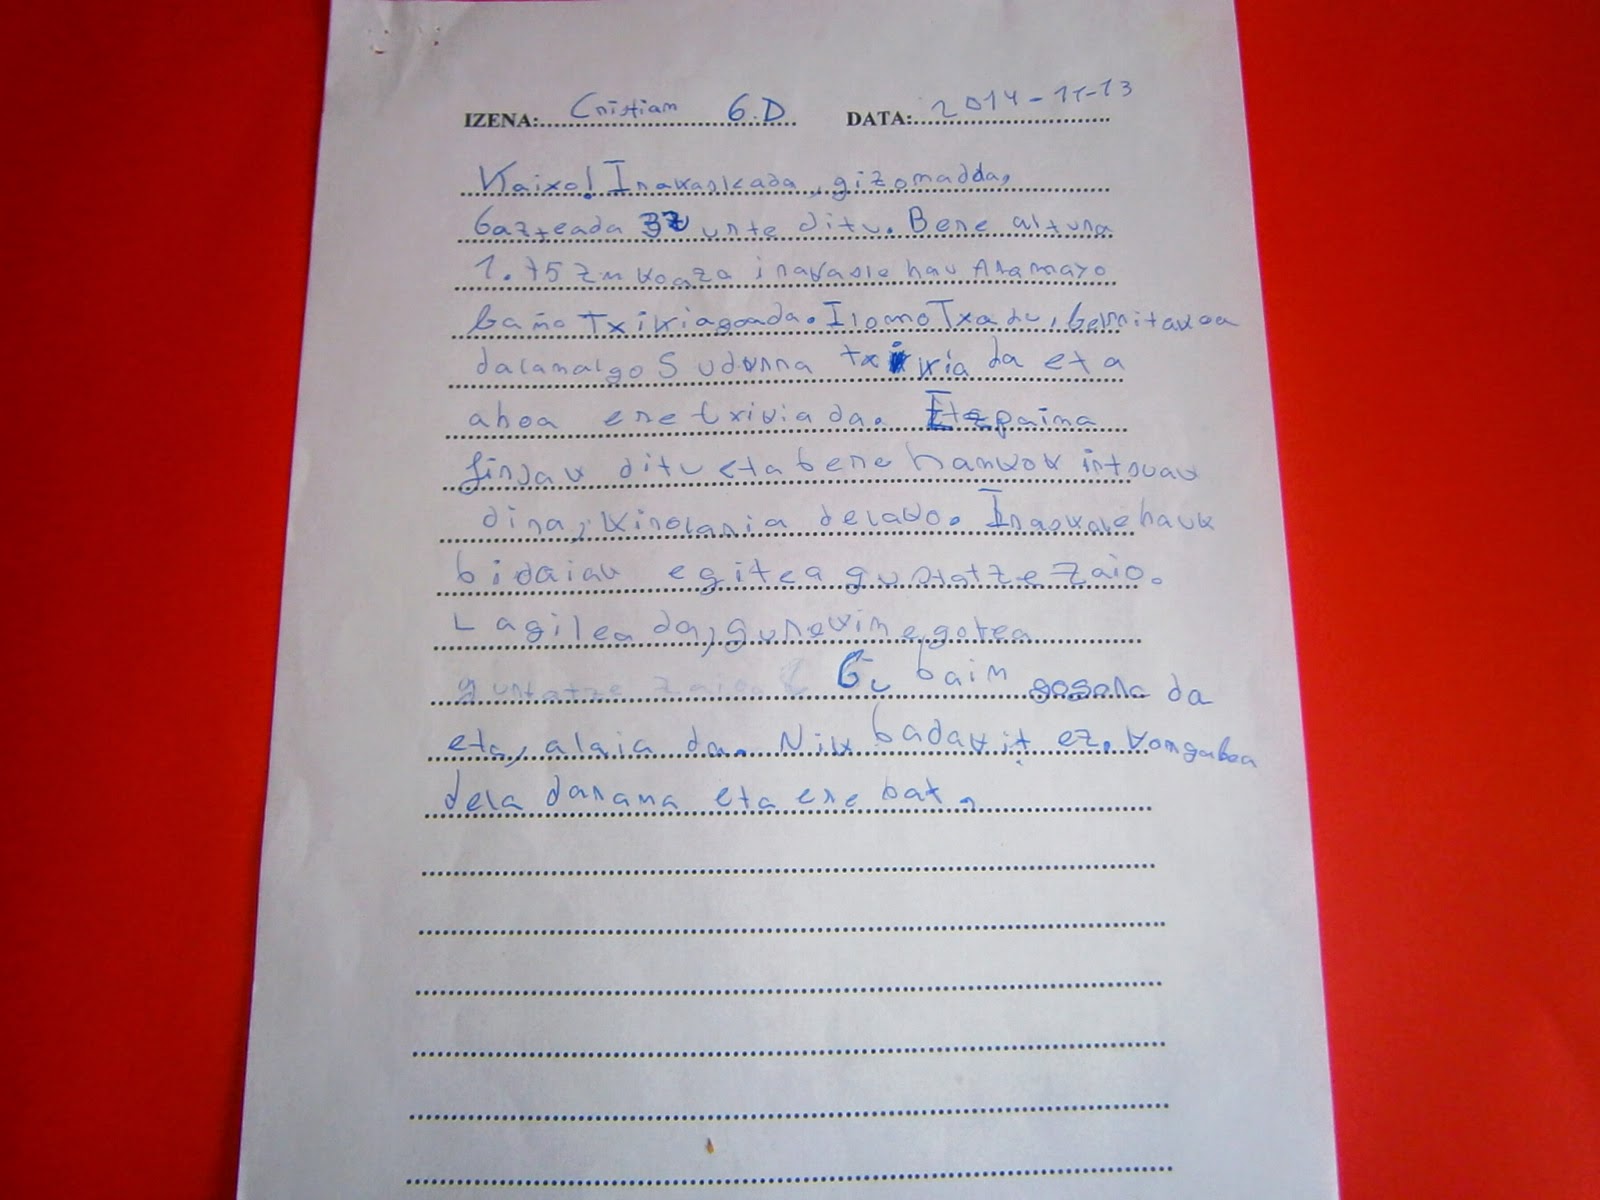 IZENA: Cristian 6.D DATA: 2014-11-13
Kaixo! Irakasleada, gizonadda,
Gazteada 32 urte ditu. Bere altura
1.75 zm koaza irakasle hau Aramayo
baño Txikiagoada. Ilomo Txadu, betaitakoa
dalamalgo Sudurra txikia da eta
ahoa ere txikiada. Ezpaina
finjak ditu eta bere hankok intsuak
dira, kirolaria delako. Iraskale hauk
bidaiak egitea gustatze zaio.
Lagilea da, gurekin egotea
gustatze zaio. Gu bain gogora da
eta, alaia da. Nik badakit ez. kongaboa
dela darama eta ere bat.